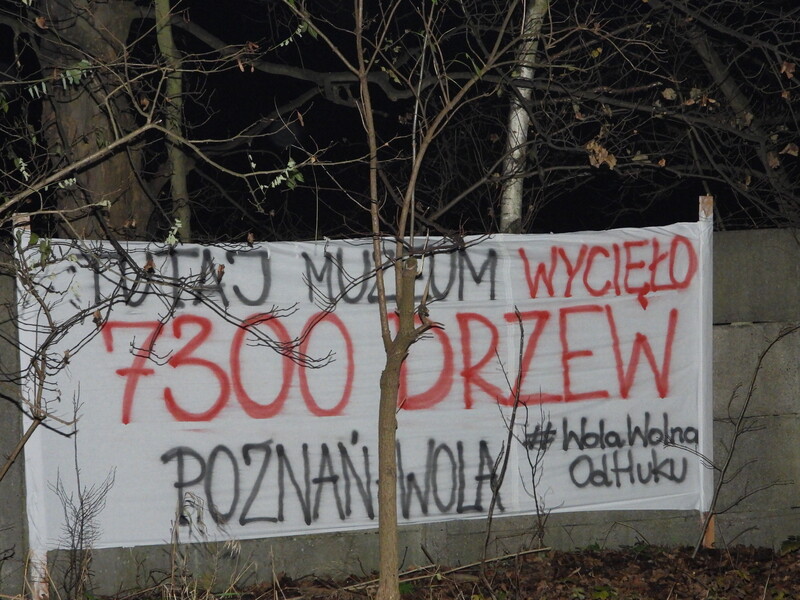 TUTAJ MUZEUM WYCIĘŁO
7300 DRZEW
POZNAŃ-WOLA
#WolaWolna
OdHuku